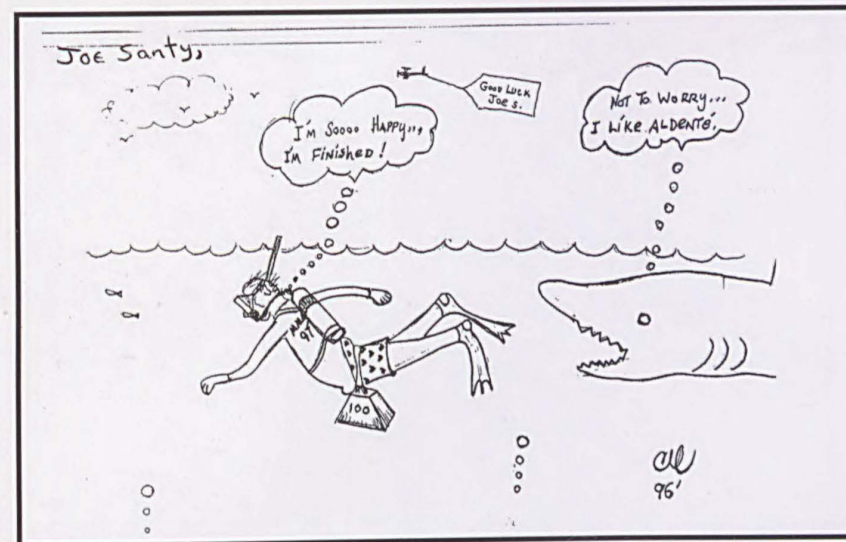 Joe Santy,
Good Luck
Joe S.
I'm Soooo Happy...
I'm Finished!
Not To Worry...
I Like Aldenté.
97
100
96'